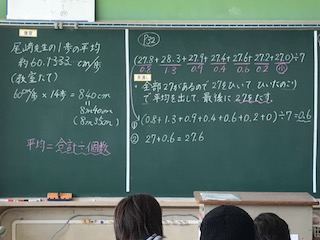 復習
尾崎先生の1歩の平均
約60.7333 cm/歩
(教室たて)
60cm/歩 × 14歩 = 840cm
=
8m40cm
(8m35cm)
平均=合計÷個数
P52
(27.8+28.3+27.9+27.4+27.6+27.2+27.0)÷7
0.8 1.3 0.9 0.4 0.6 0.2 0
・全部27があるので27をひいて、いたのこり
で平均を出して、最後に27をたす。
① (0.8+1.3+0.9+0.4+0.6+0.2+0)÷7=0.6
② 27+0.6=27.6